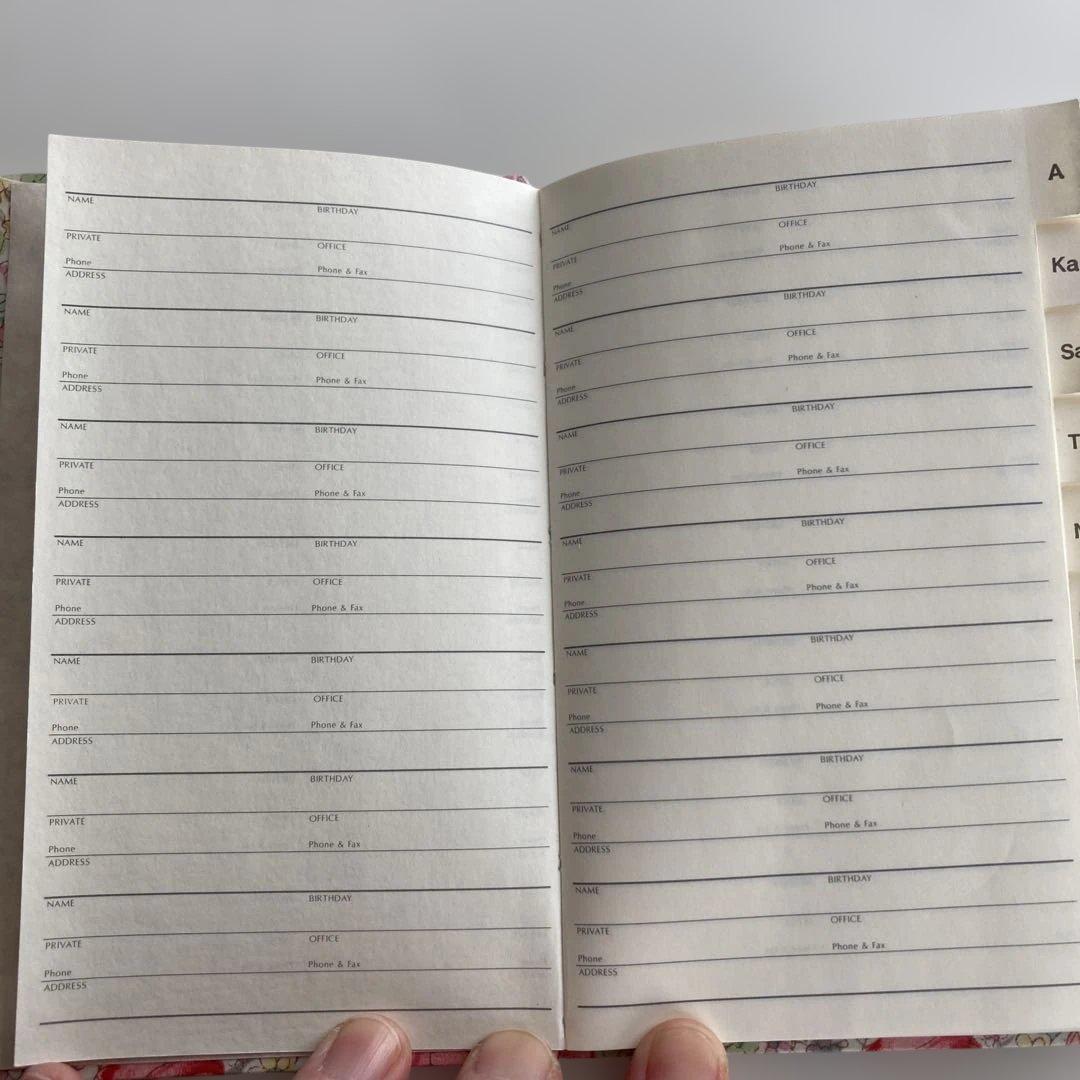 NAME BIRTHDAY
PRIVATE OFFICE
Phone Phone & Fax
ADDRESS
NAME BIRTHDAY
PRIVATE OFFICE
Phone Phone & Fax
ADDRESS
NAME BIRTHDAY
PRIVATE OFFICE
Phone Phone & Fax
ADDRESS
NAME BIRTHDAY
PRIVATE OFFICE
Phone Phone & Fax
ADDRESS
NAME BIRTHDAY
PRIVATE OFFICE
Phone Phone & Fax
ADDRESS
NAME BIRTHDAY
PRIVATE OFFICE
Phone Phone & Fax
ADDRESS
NAME BIRTHDAY
PRIVATE OFFICE
Phone Phone & Fax
ADDRESS
NAME BIRTHDAY
PRIVATE OFFICE
Phone Phone & Fax
ADDRESS
NAME BIRTHDAY
PRIVATE OFFICE
Phone Phone & Fax
ADDRESS
NAME BIRTHDAY
PRIVATE OFFICE
Phone Phone & Fax
ADDRESS
NAME BIRTHDAY
PRIVATE OFFICE
Phone Phone & Fax
ADDRESS
NAME BIRTHDAY
PRIVATE OFFICE
Phone Phone & Fax
ADDRESS
NAME BIRTHDAY
PRIVATE OFFICE
Phone Phone & Fax
ADDRESS
NAME BIRTHDAY
PRIVATE OFFICE
Phone Phone & Fax
ADDRESS
A
Ka
Sa
T